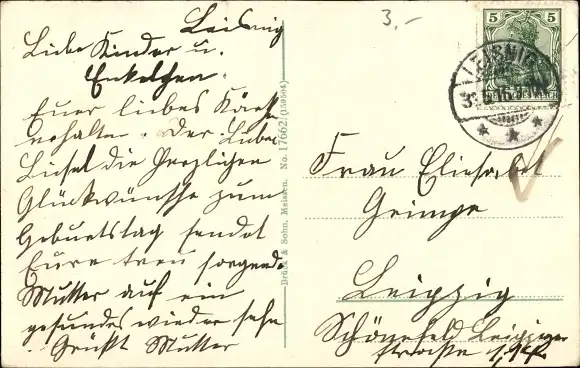 Leisnig
Liebe Kinder u.
Enkelchen.
Euer liebes Kärtch
erhalten. Der Lieben
Liesel die Herzlichen
Glückwünsche zum
Geburtstag sendet
Eure treu sorgende
Mutter auf ein
gesundes wieder sehn
Grüßt Mutter
Brück & Sohn, Meissen. No. 17662 (159504)
3,-
5 5
DEUTSCHES REICH
LEISNIG
Frau Elisabet
Grimpe
Leipzig
Schönefeld Leipziger
straße